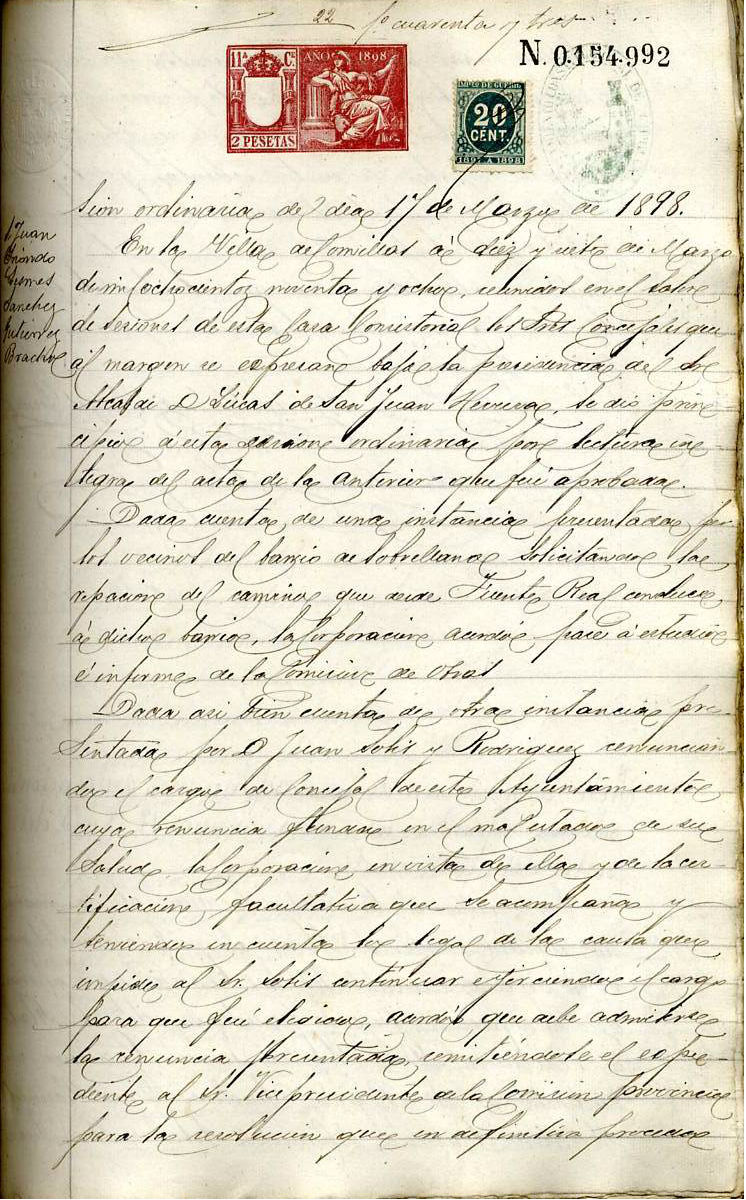 22 fº cuarenta y tres
11ª Cª AÑO 1898
2 PESETAS
N. 0.154.992
20
CENT.
1897 A 1898
Sion ordinaria del día 17 de Marzo de 1898.
S. Juan
Sanchez
Gutierrez
En la Villa de Comillas á diez y siete de Marzo
de mil ochocientos noventa y ocho, reunidos en el Salon
de Sesiones de esta Casa Consistorial los Sres Concejales que
al margen se expresan bajo la presidencia del Sr
Alcalde D Lucas de San Juan Herrera, se dió prin-
cipio á esta sesion ordinaria por lectura in-
tegra del acta de la anterior que fué aprobada.
Dada cuenta de una instancia presentada por
los vecinos del barrio de Sobrellano solicitando la
repacion del camino que desde Fuente Real conduce
á dicho barrio, la Corporacion acordó pase á estudio
é informe de la Comision de Obras
Dada asi bien cuenta de otra instancia pre-
sentada por D Juan Solis y Rodriguez renuncian-
do el cargo de Concejal de este Ayuntamiento
cuya renuncia funda en el mal estado de su
Salud, la Corporacion en vista de ella y de la cer-
tificacion facultativa que se acompaña y
teniendo en cuenta lo legal de la causa que
impide al Sr. Solis continuar ejerciendo el cargo
para que fué elegido, acordó que debe admitirse
la renuncia presentada, remitiéndose el espe-
diente al Sr. Vicepresidente de la Comision provincial
para la resolucion que en definitiva proceda